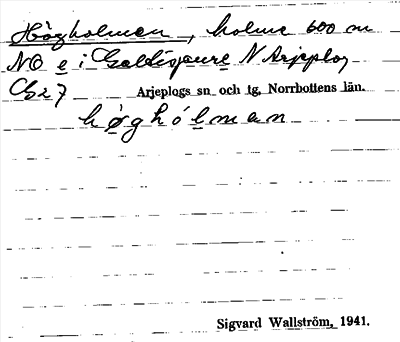 Högholmen, holme 600 m
NO e i Galtispure N Arjeplog
Cb27 Arjeplogs sn och tg, Norrbottens län.
høghólmen
Sigvard Wallström, 1941.